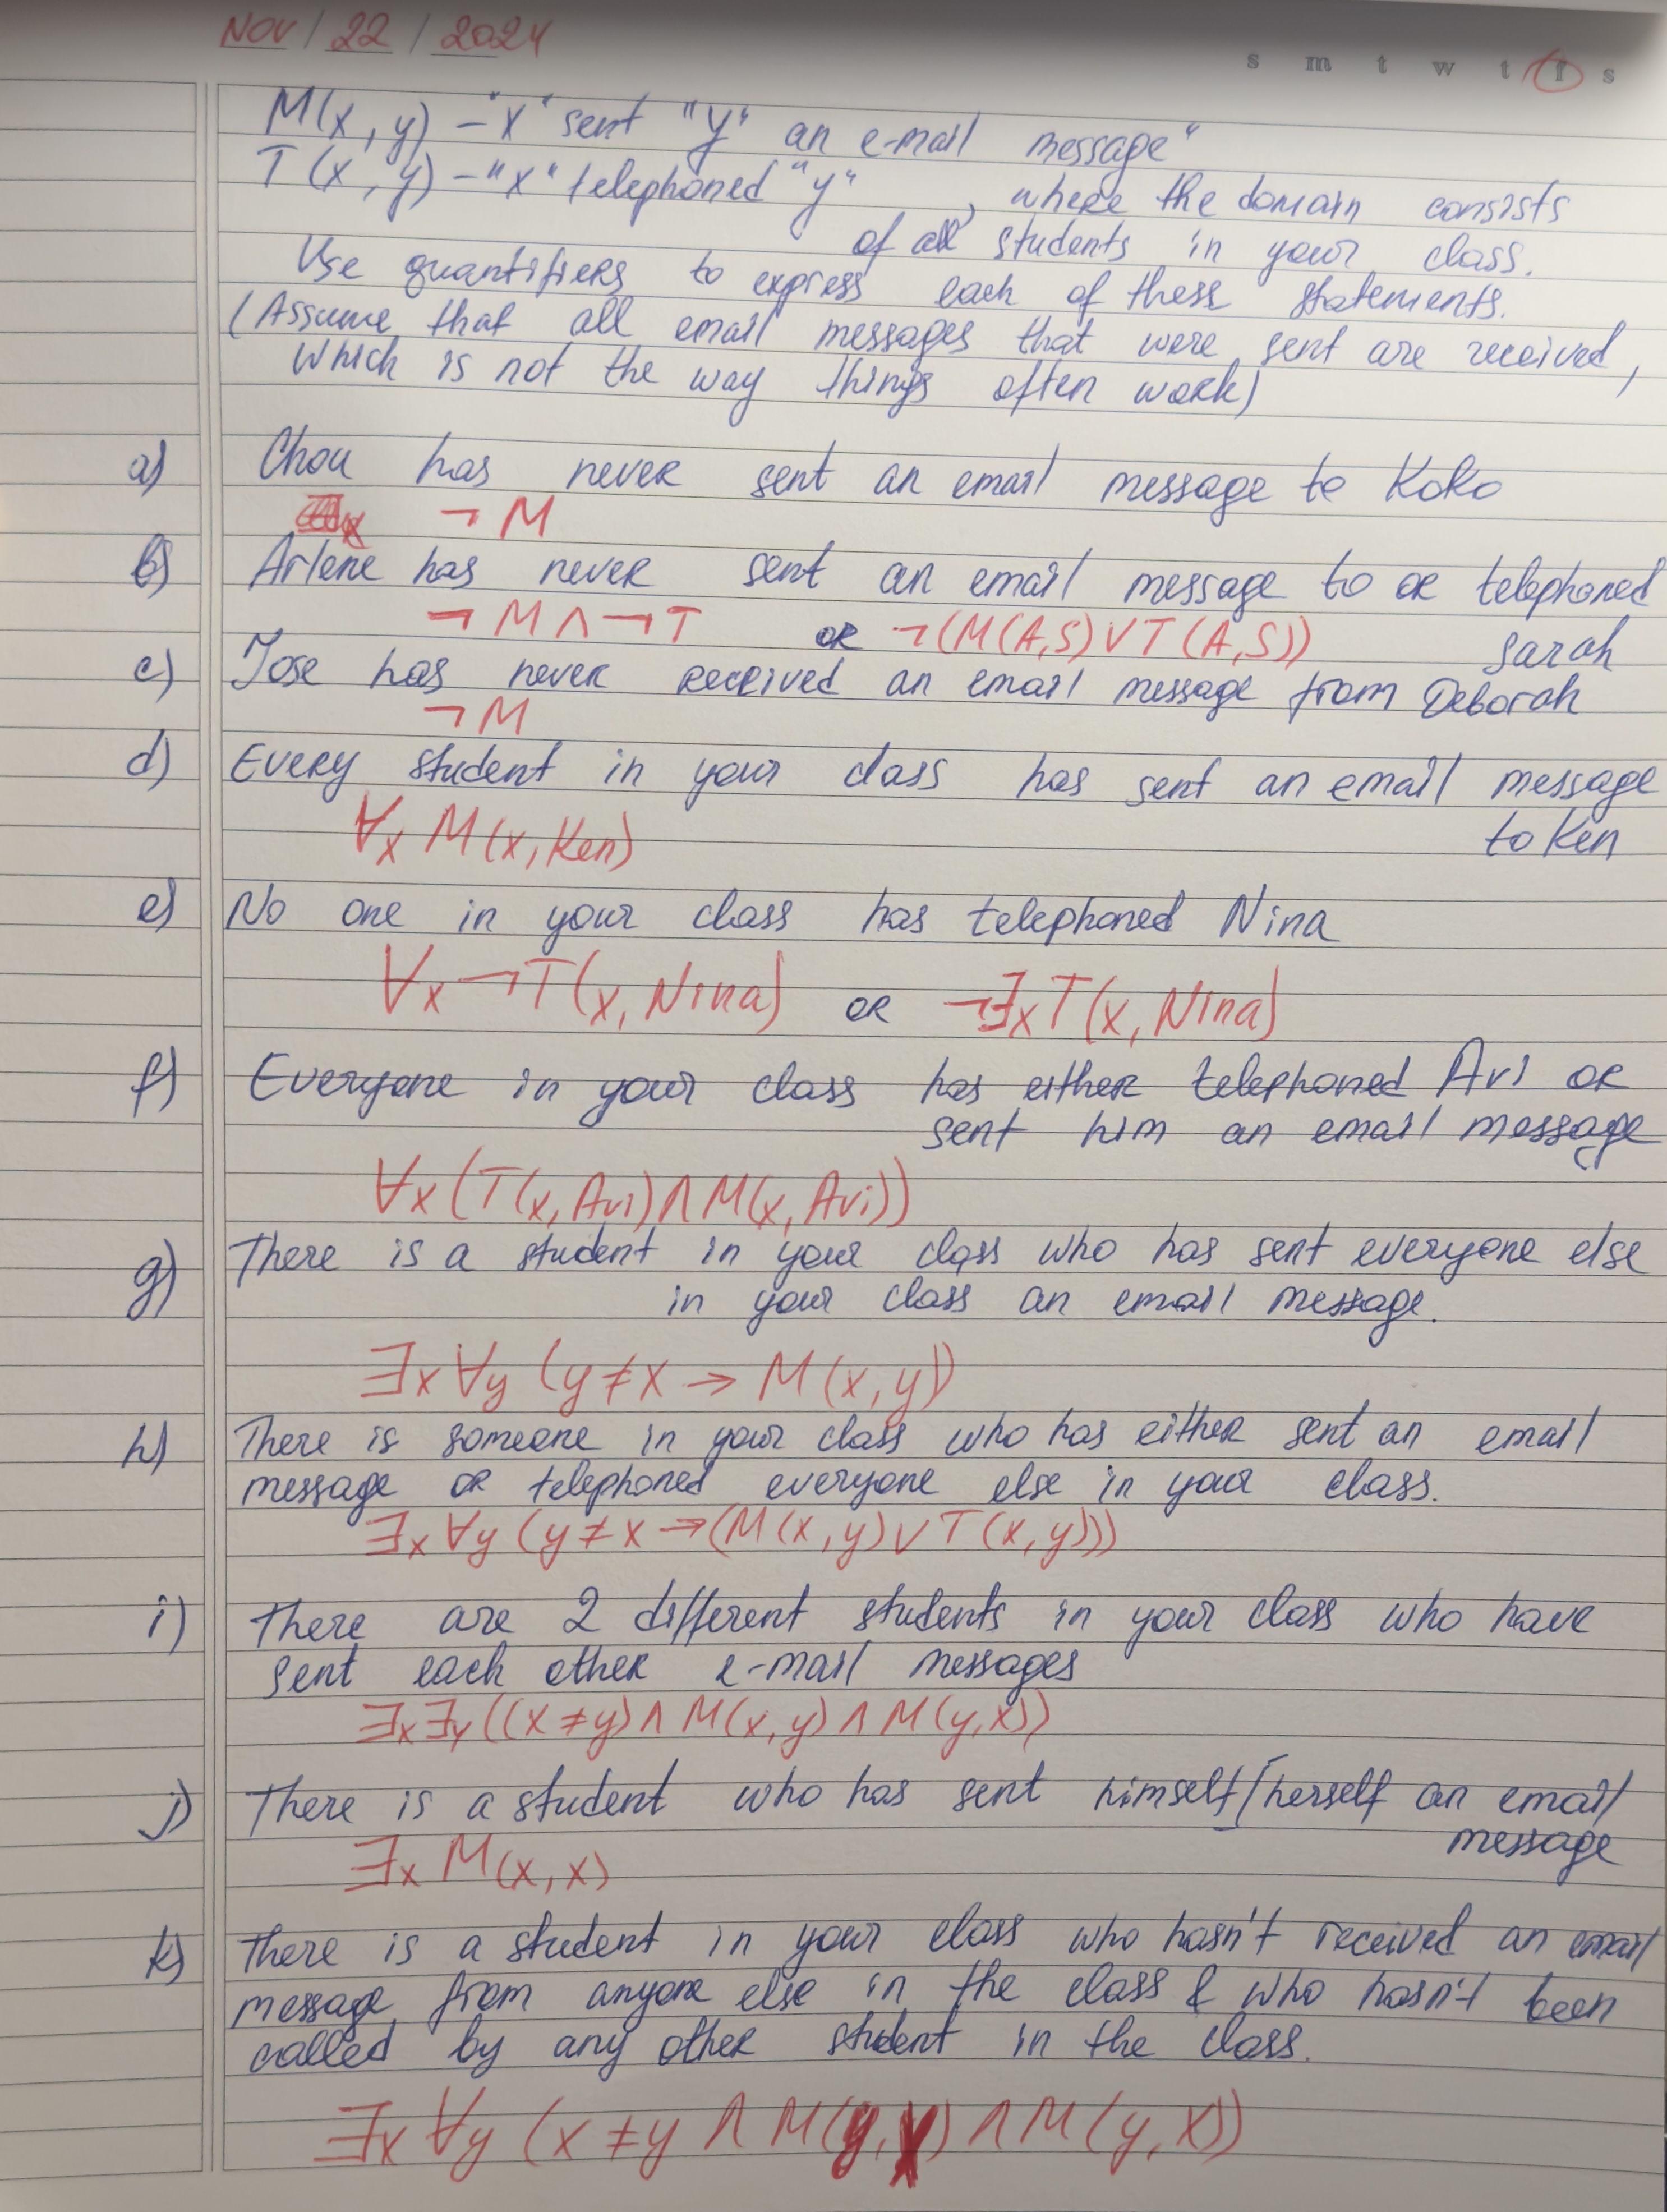 NOV / 22 / 2024
s m t w t f s
M(x, y) - "x" sent "y" an e-mail message"
T(x, y) - "x" telephoned "y" , where the domain consists
of all students in your class.
Use quantifiers to express each of these statements.
(Assume that all email messages that were sent are received,
which is not the way things often work)
a) Chou has never sent an email message to Koko
¬ M
b) Arlene has never sent an email message to or telephoned
Sarah
¬ M ∧ ¬ T OR ¬(M(A,S) ∨ T(A,S))
c) Jose has never received an email message from Deborah
¬ M
d) Every student in your class has sent an email message
to Ken
∀x M(x, Ken)
e) No one in your class has telephoned Nina
∀x ¬T(x, Nina) OR ¬∃x T(x, Nina)
f) Everyone in your class has either telephoned Avi or
sent him an email message
∀x (T(x, Avi) ∧ M(x, Avi))
g) There is a student in your class who has sent everyone else
in your class an email message.
∃x ∀y (y ≠ x → M(x, y))
h) There is someone in your class who has either sent an email
message or telephoned everyone else in your class.
∃x ∀y (y ≠ x → (M(x, y) ∨ T(x, y)))
i) There are 2 different students in your class who have
sent each other e-mail messages
∃x ∃y ((x ≠ y) ∧ M(x, y) ∧ M(y, x))
j) There is a student who has sent himself/herself an email
message
∃x M(x, x)
k) There is a student in your class who hasn't received an email
message from anyone else in the class & who hasn't been
called by any other student in the class.
∃x ∀y (x ≠ y ∧ M(y, x) ∧ M(y, x))